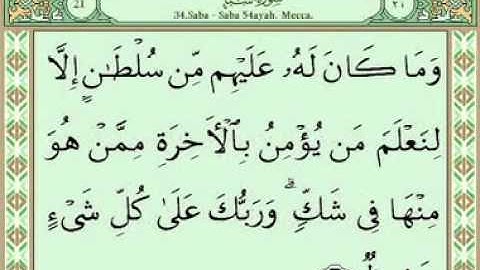 21 34.Saba - Saba 54ayah. Mecca. ٢١
وَمَا كَانَ لَهُۥ عَلَيْهِم مِّن سُلْطَـٰنٍ إِلَّا
لِنَعْلَمَ مَن يُؤْمِنُ بِٱلْـَٔاخِرَةِ مِمَّنْ هُوَ
مِنْهَا فِى شَكٍّ ۗ وَرَبُّكَ عَلَىٰ كُلِّ شَىْءٍ